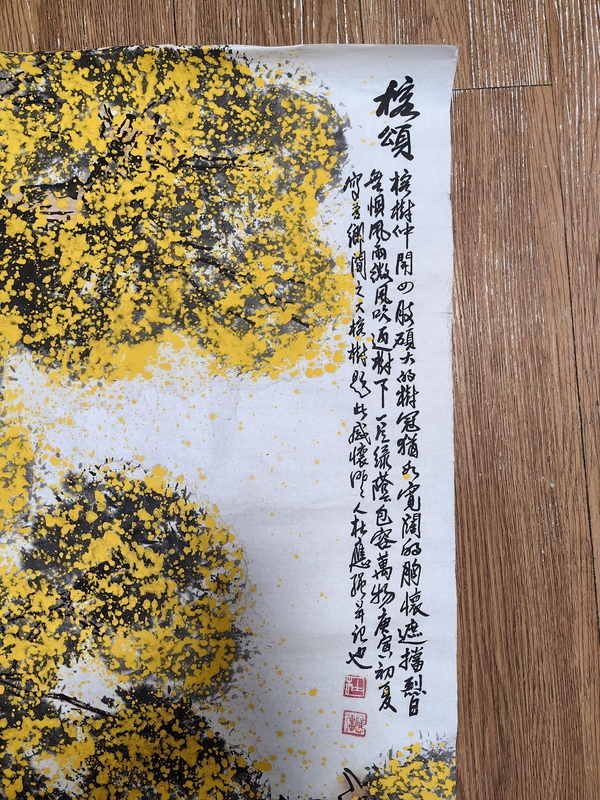 榕頌
榕樹伸開四肢碩大的樹冠猶如寬闊的胸懷遮擋烈日
無懼風雨微風吹過樹下一片綠蔭包容萬物庚寅初夏
寫吾鄉間之大榕樹題此感懷人杜應強并記也
杜